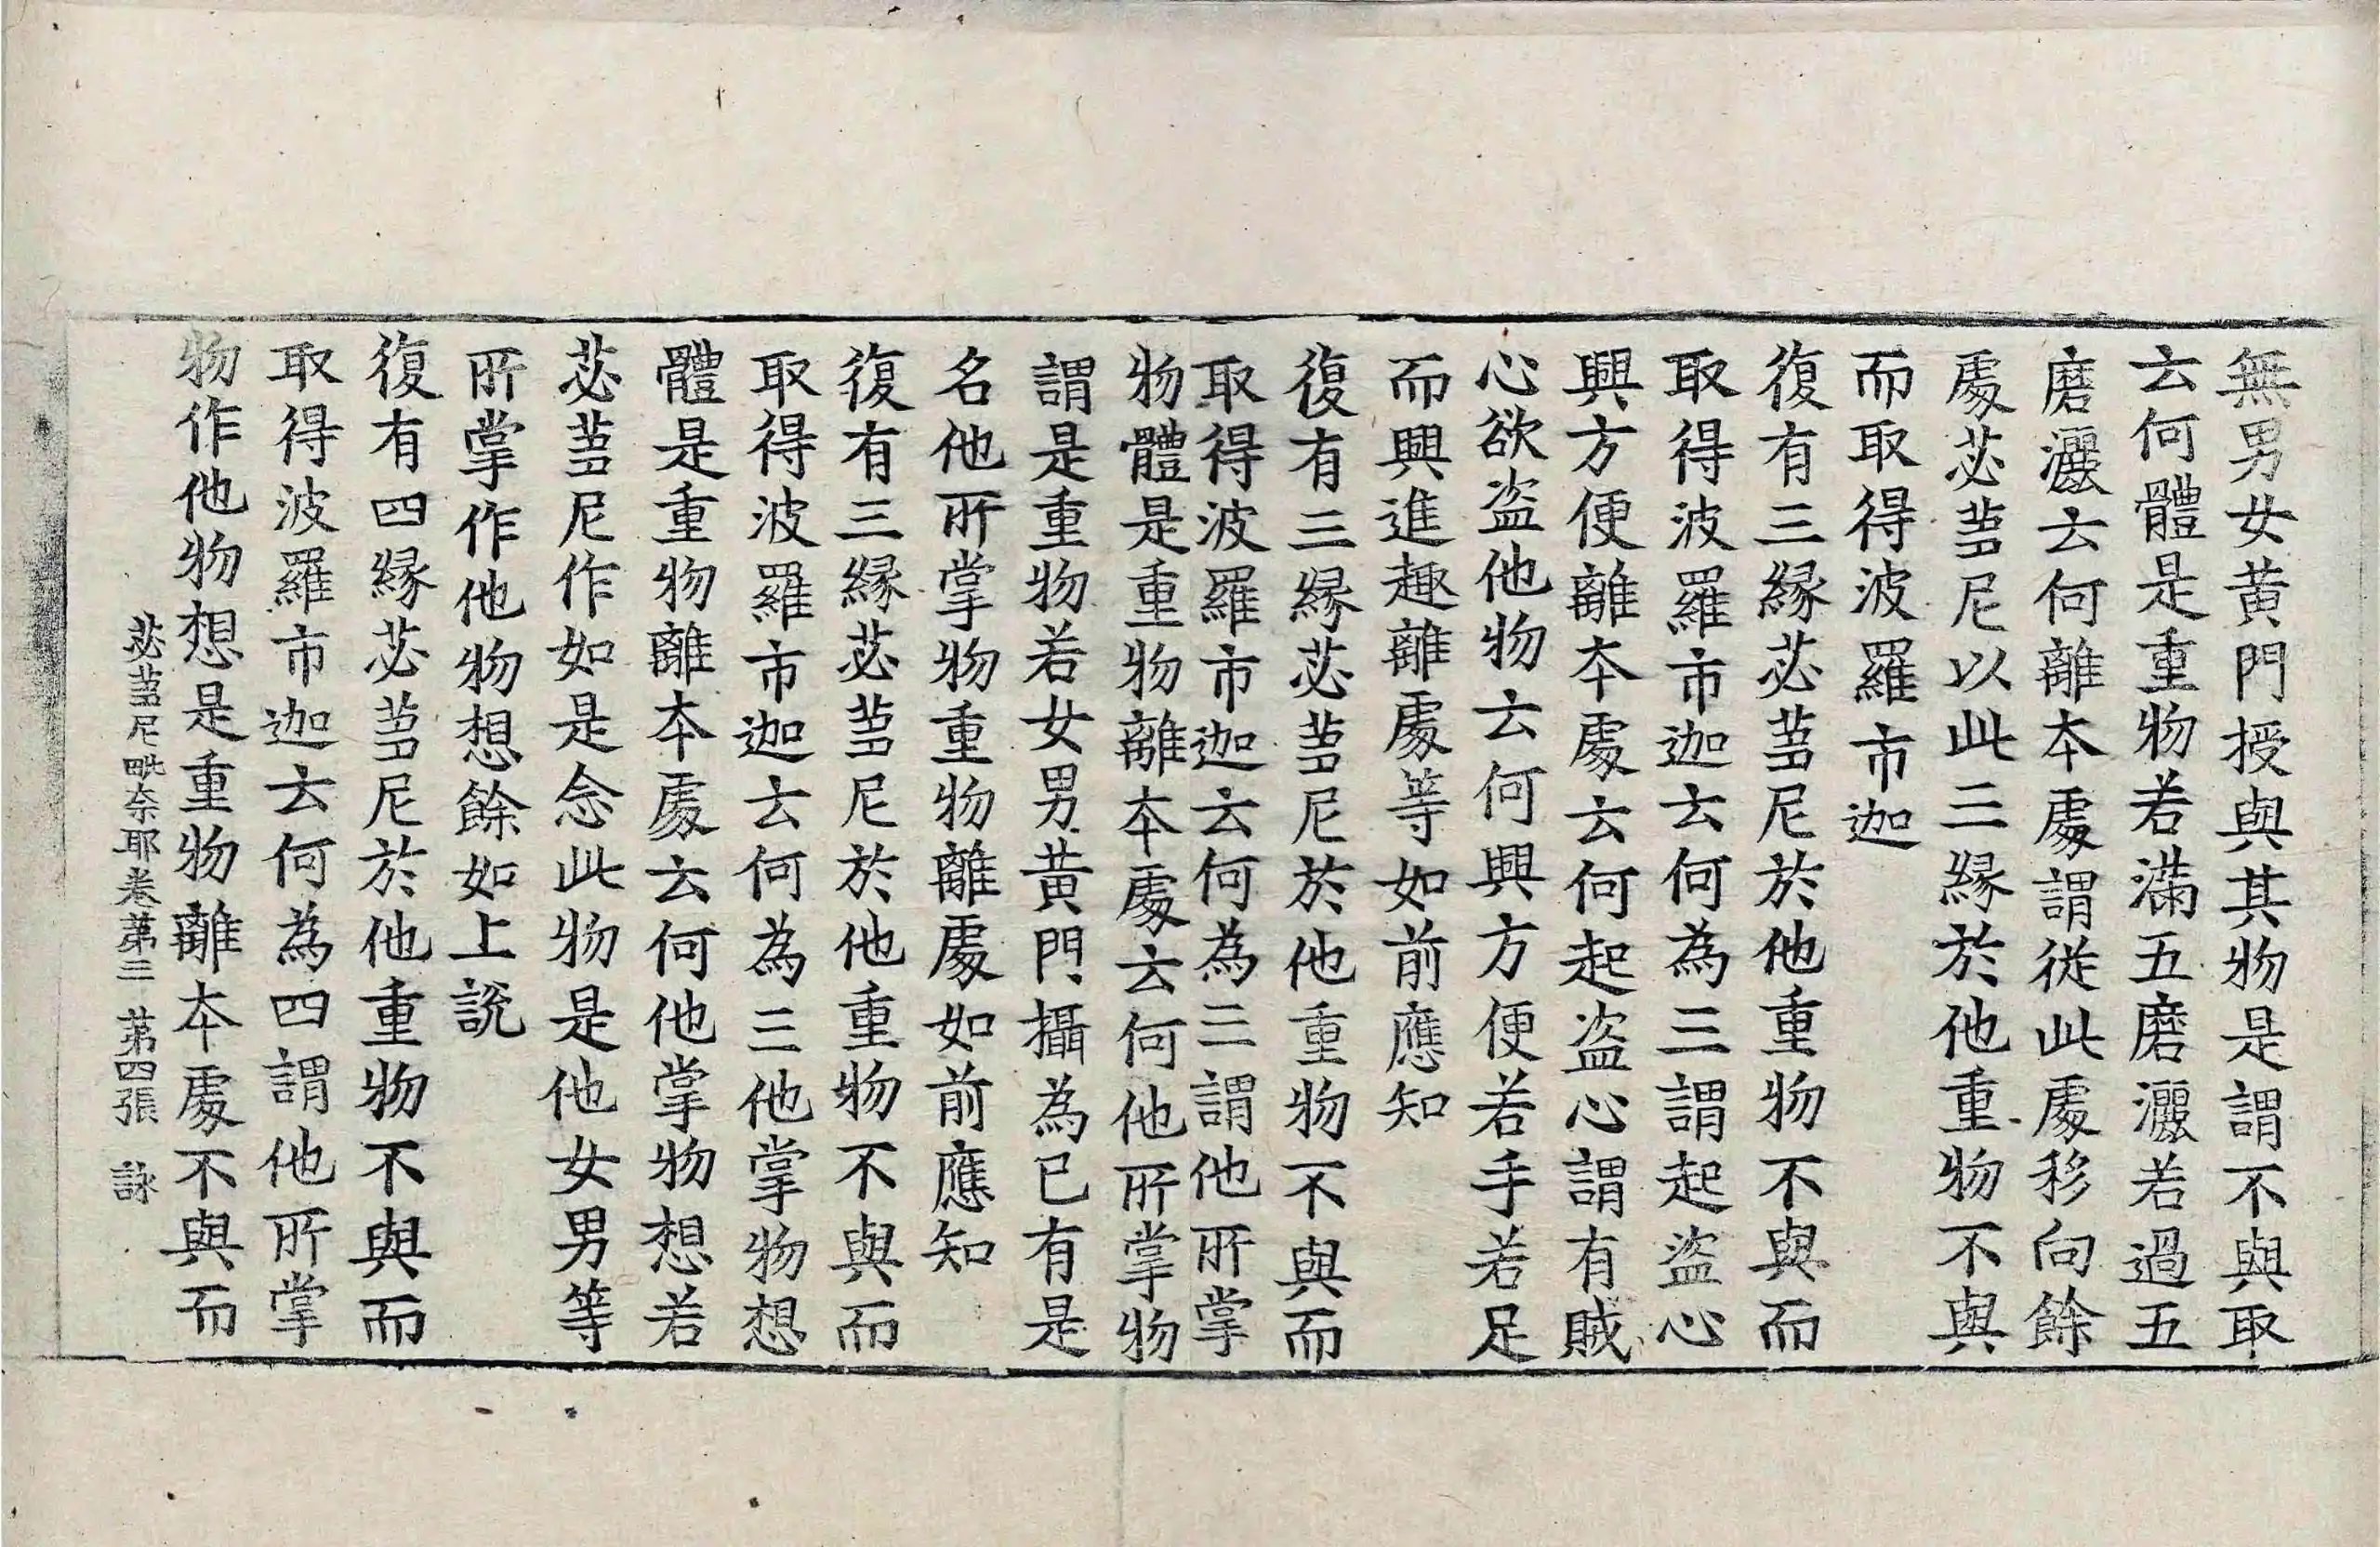 無男女黄門授與其物是謂不與取
云何體是重物若滿五磨灑若過五
磨灑云何離本處謂從此處移向餘
處苾芻尼以此三縁於他重物不與
而取得波羅市迦
復有三縁苾芻尼於他重物不與而
取得波羅市迦云何為三謂起盜心
興方便離本處云何起盜心謂有賊
心欲盜他物云何興方便若手若足
而興進趣離處等如前應知
復有三縁苾芻尼於他重物不與而
取得波羅市迦云何為三謂他所掌
物體是重物離本處云何他所掌物
謂是重物若女男黄門攝為已有是
名他所掌物重物離處如前應知
復有三縁苾芻尼於他重物不與而
取得波羅市迦云何為三他掌物想
體是重物離本處云何他掌物想若
苾芻尼作如是念此物是他女男等
所掌作他物想餘如上說
復有四縁苾芻尼於他重物不與而
取得波羅市迦云何為四謂他所掌
物作他物想是重物離本處不與而
苾芻尼毗奈耶卷第三 第四張 詠